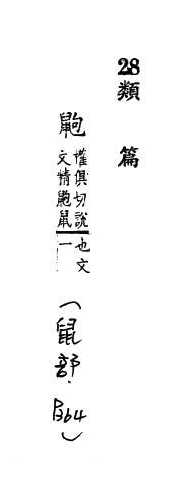 28類篇
鼩權俱切說文精鼩鼠也文一
(鼠部.B64)